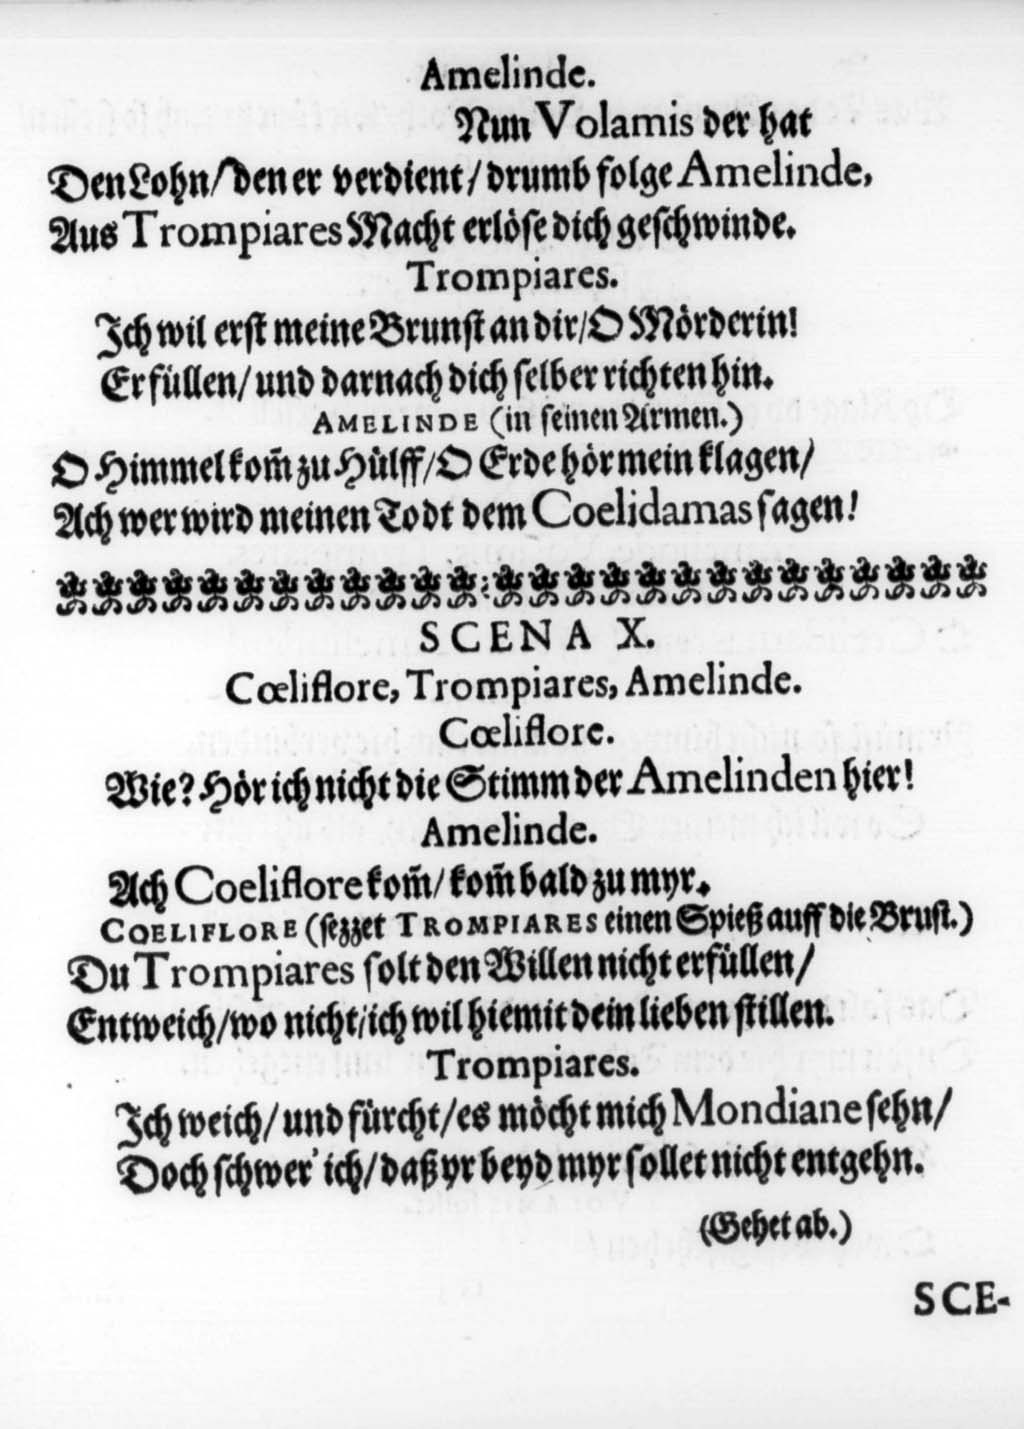 Amelinde.
Nun Volamis der hat
Den Lohn/ den er verdient/ drumb folge Amelinde,
Aus Trompiares Macht erlöse dich geschwinde.
Trompiares.
Ich wil erst meine Brunst an dir/ O Mörderin!
Erfüllen/ und darnach dich selber richten hin.
AMELINDE (in seinen Armen.)
O Himmel kom̃ zu Hülff/ O Erde hör mein klagen/
Ach wer wird meinen Todt dem Coelidamas sagen!
SCENA X.
Cœliflore, Trompiares, Amelinde.
Cœliflore.
Wie? Hör ich nicht die Stimm der Amelinden hier!
Amelinde.
Ach Coeliflore kom̃/ kom̃ bald zu myr.
COELIFLORE (sezzet TROMPIARES einen Spieß auff die Brust.)
Du Trompiares solt den Willen nicht erfüllen/
Entweich/ wo nicht/ ich wil hiemit dein lieben stillen.
Trompiares.
Ich weich/ und fürcht/ es möcht mich Mondiane sehn/
Doch schwer' ich/ daß yr beyd myr sollet nicht entgehn.
(Gehet ab.)
SCE-